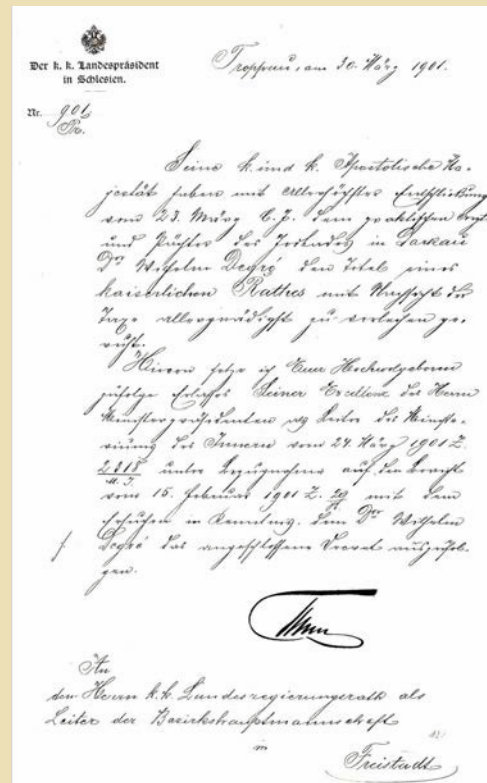 Der k. k. Landespräsident
in Schlesien.
Troppau, am 30. März 1901.
Nr. 901
Pr.
Seine k. und k. Apostolische Ma-
jestät haben mit Allerhöchster Entschließung
vom 23. März l. J. dem praktischen Arzte
und Pächter des Jodbades in Darkau
Dr Wilhelm Degré den Titel eines
kaiserlichen Rathes mit Nachsicht der
Taxe allergnädigst zu verleihen ge-
ruht.
Hievon setze ich Euer Hochwohlgeboren
zufolge Erlasses Seiner Excellenz des Herrn
Ministerpräsidenten als Leiter des Ministe-
riums des Innern vom 24. März 1901 Z.
2318
M. I. unter Bezugnahme auf den Bericht
vom 15. Februar 1901 Z. mit dem
Ersuchen in Kenntnis, dem Dr Wilhelm
Degré das angeschlossene Decret auszufol-
gen.
An
den Herrn k. k. Landesregierungsrath als
Leiter der Bezirkshauptmannschaft
in
Freistadt